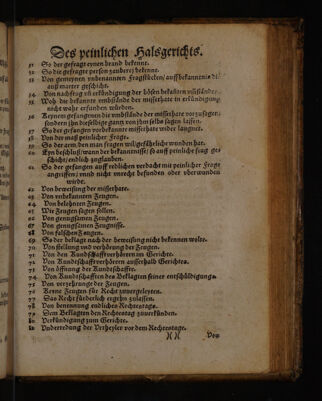 Des peinlichen Halsgerichts.
51 So der gefragt eynen brand bekennt.
52 So die gefragte person zauberey bekennt.
53 Von gemeynen unbenannten Fragstücken/ auff bekenntnis die
auß marter geschicht.
54 Von nachfrag vñ erkündigung der bösen bekanten
55 Wo die bekanten umbstände der missethat in erkündigung
nicht wahr erfunden würden.
56 Keynem gefangenen die umbständ der missethat vorzusagen/
sondern ihn dieselbige gantz von ihm selbs sagen lassen.
57 So der gefangen vorbekannte missethat wider laugnet.
58 Von der maß peinlicher Frage.
59 So der arm den man fragen will/gefährliche wunden hat.
60 Eyn beschluß/ wann der bekentnisse/ so auff peinliche frag ges
schicht/ endlich zuglauben.
61 So der gefangen auff redlichen verdacht mit peinlicher Frage
angriffen/ und nicht unrecht befunden oder überwunden
wirde.
62 Von beweisung der missethate.
63 Von unbekannten Zeugen.
64 Von belehnten Zeugen.
65 Wie Zeugen sagen sollen.
66 Von genugsamen Zeugen.
67 Von genugsamen Zeugnisse.
68 Von falschen Zeugen.
69 So der beklagt nach der beweisung nicht bekennen wolte.
70 Von stellung und verhörung der Zeugen.
71 Von den Kundschafftverhörern im Gerichte.
72 Von Kundschafftverhörern ausserhalb Gerichtes.
73 Von öffnung der Kundschafft.
74 Von Kundschafften des Beklagten seiner entschüldigung.
75 Von verzehrunge der Zeugen.
76 Keyne Zeugen für Recht zuvergleyten.
77 Das Recht fürderlich ergehn zulassen.
78 Von benennung endliches Rechtestags.
79 Dem Beklagten den Rechtstag zuverkünden.
80 Verkündigung zum Gerichte.
81 Underredung der Urtheyler vor dem Rechtestage.
Von